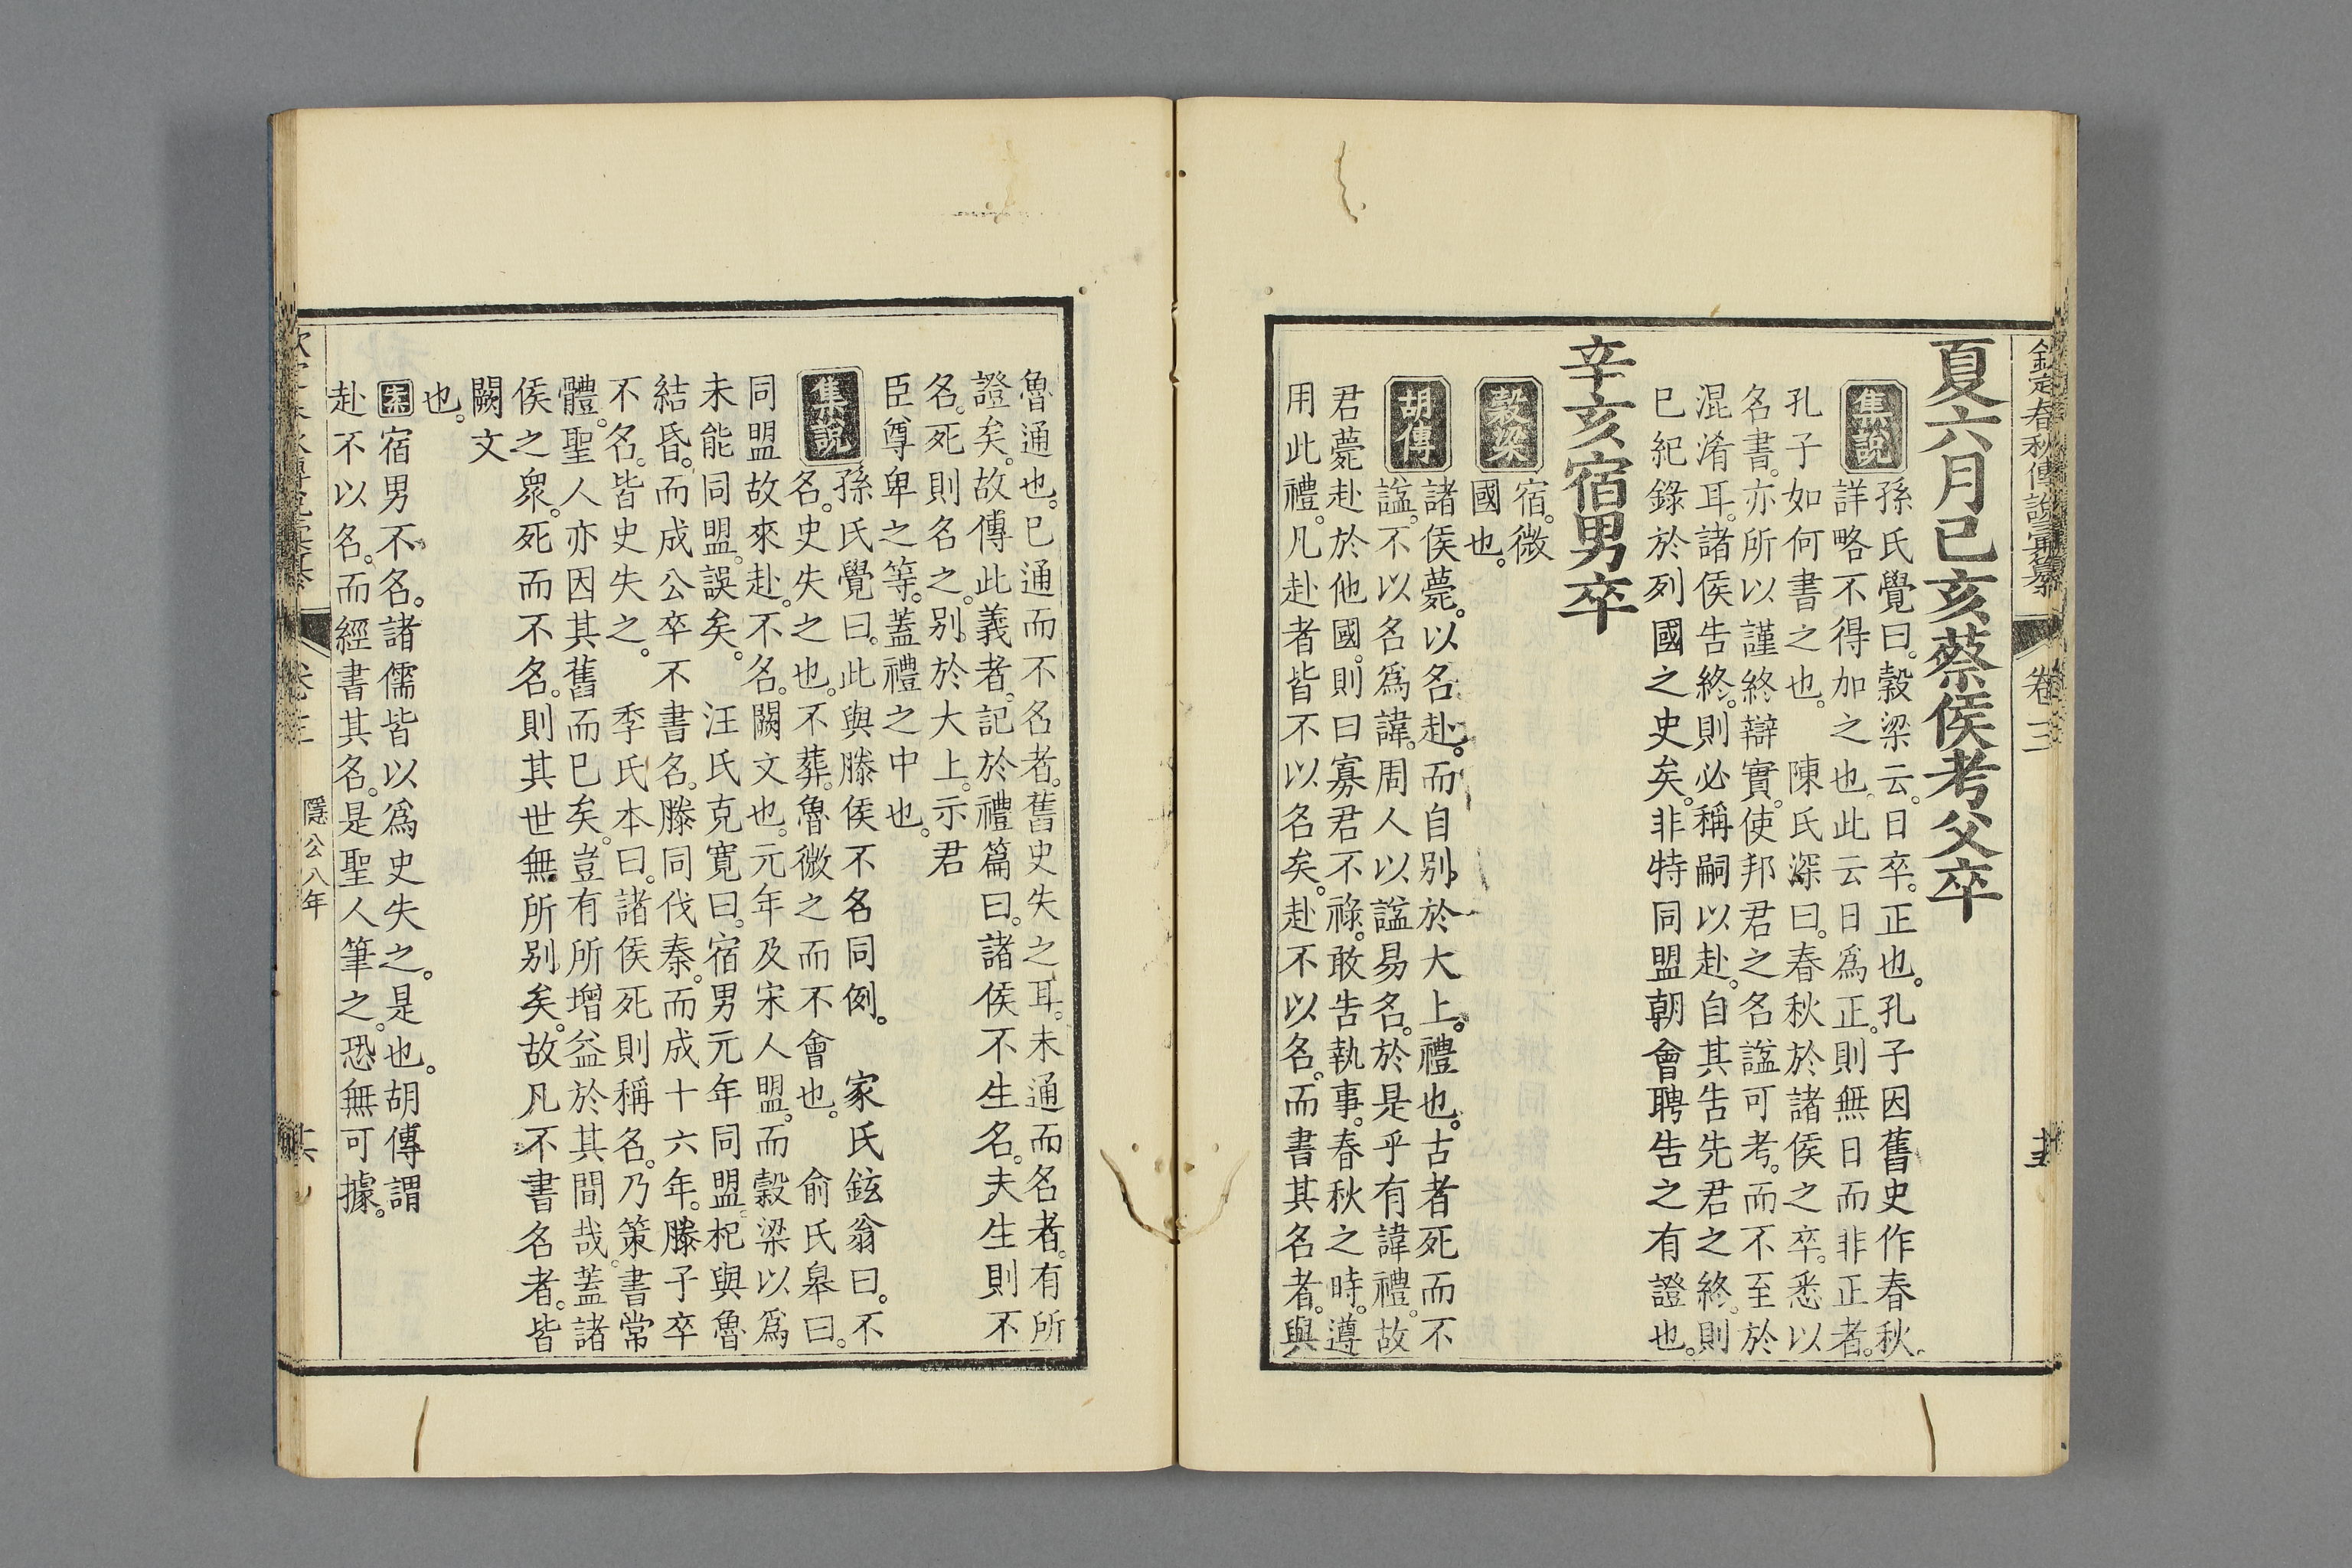 欽定春秋傳說彙纂 卷三
夏六月己亥蔡侯考父卒
集說 孫氏覺曰。穀梁云。日卒。正也。孔子因舊史作春秋。
詳略不得加之也。此云日爲正。則無日而非正者。
孔子如何書之也。 陳氏深曰。春秋於諸侯之卒。悉以
名書。亦所以謹終辯實。使邦君之名諡可考。而不至於
混淆耳。諸侯告終。則必稱嗣以赴。自其告先君之終。則
已紀錄於列國之史矣。非特同盟朝會聘告之有證也。
辛亥宿男卒
穀梁 宿。微
國也。
胡傳 諸侯薨。以名赴。而自别於大上。禮也。古者死而不
諡。不以名爲諱。周人以諡易名。於是乎有諱禮。故
君薨赴於他國。則曰寡君不祿。敢告執事。春秋之時。遵
用此禮。凡赴者皆不以名矣。赴不以名。而書其名者。與
魯通也。已通而不名者。舊史失之耳。未通而名者。有所
證矣。故傳此義者。記於禮篇曰。諸侯不生名。夫生則不
名。死則名之。别於大上。示君
臣尊卑之等。蓋禮之中也。
集說 孫氏覺曰。此與滕侯不名同例。 家氏鉉翁曰。不
名。史失之也。不葬。魯微之而不會也。 俞氏皋曰。
同盟故來赴。不名。闕文也。元年及宋人盟。而穀梁以爲
未能同盟。誤矣。 汪氏克寬曰。宿男元年同盟。杞與魯
結昏。而成公卒不書名。滕同伐秦。而成十六年。滕子卒
不名。皆史失之。 季氏本曰。諸侯死則稱名。乃策書常
體。聖人亦因其舊而已矣。豈有所增益於其間哉。蓋諸
侯之衆。死而不名。則其世無所别矣。故凡不書名者。皆
闕文
也。
案 宿男不名。諸儒皆以爲史失之。是也。胡傳謂
赴不以名。而經書其名。是聖人筆之。恐無可據。
卷三 隱公八年